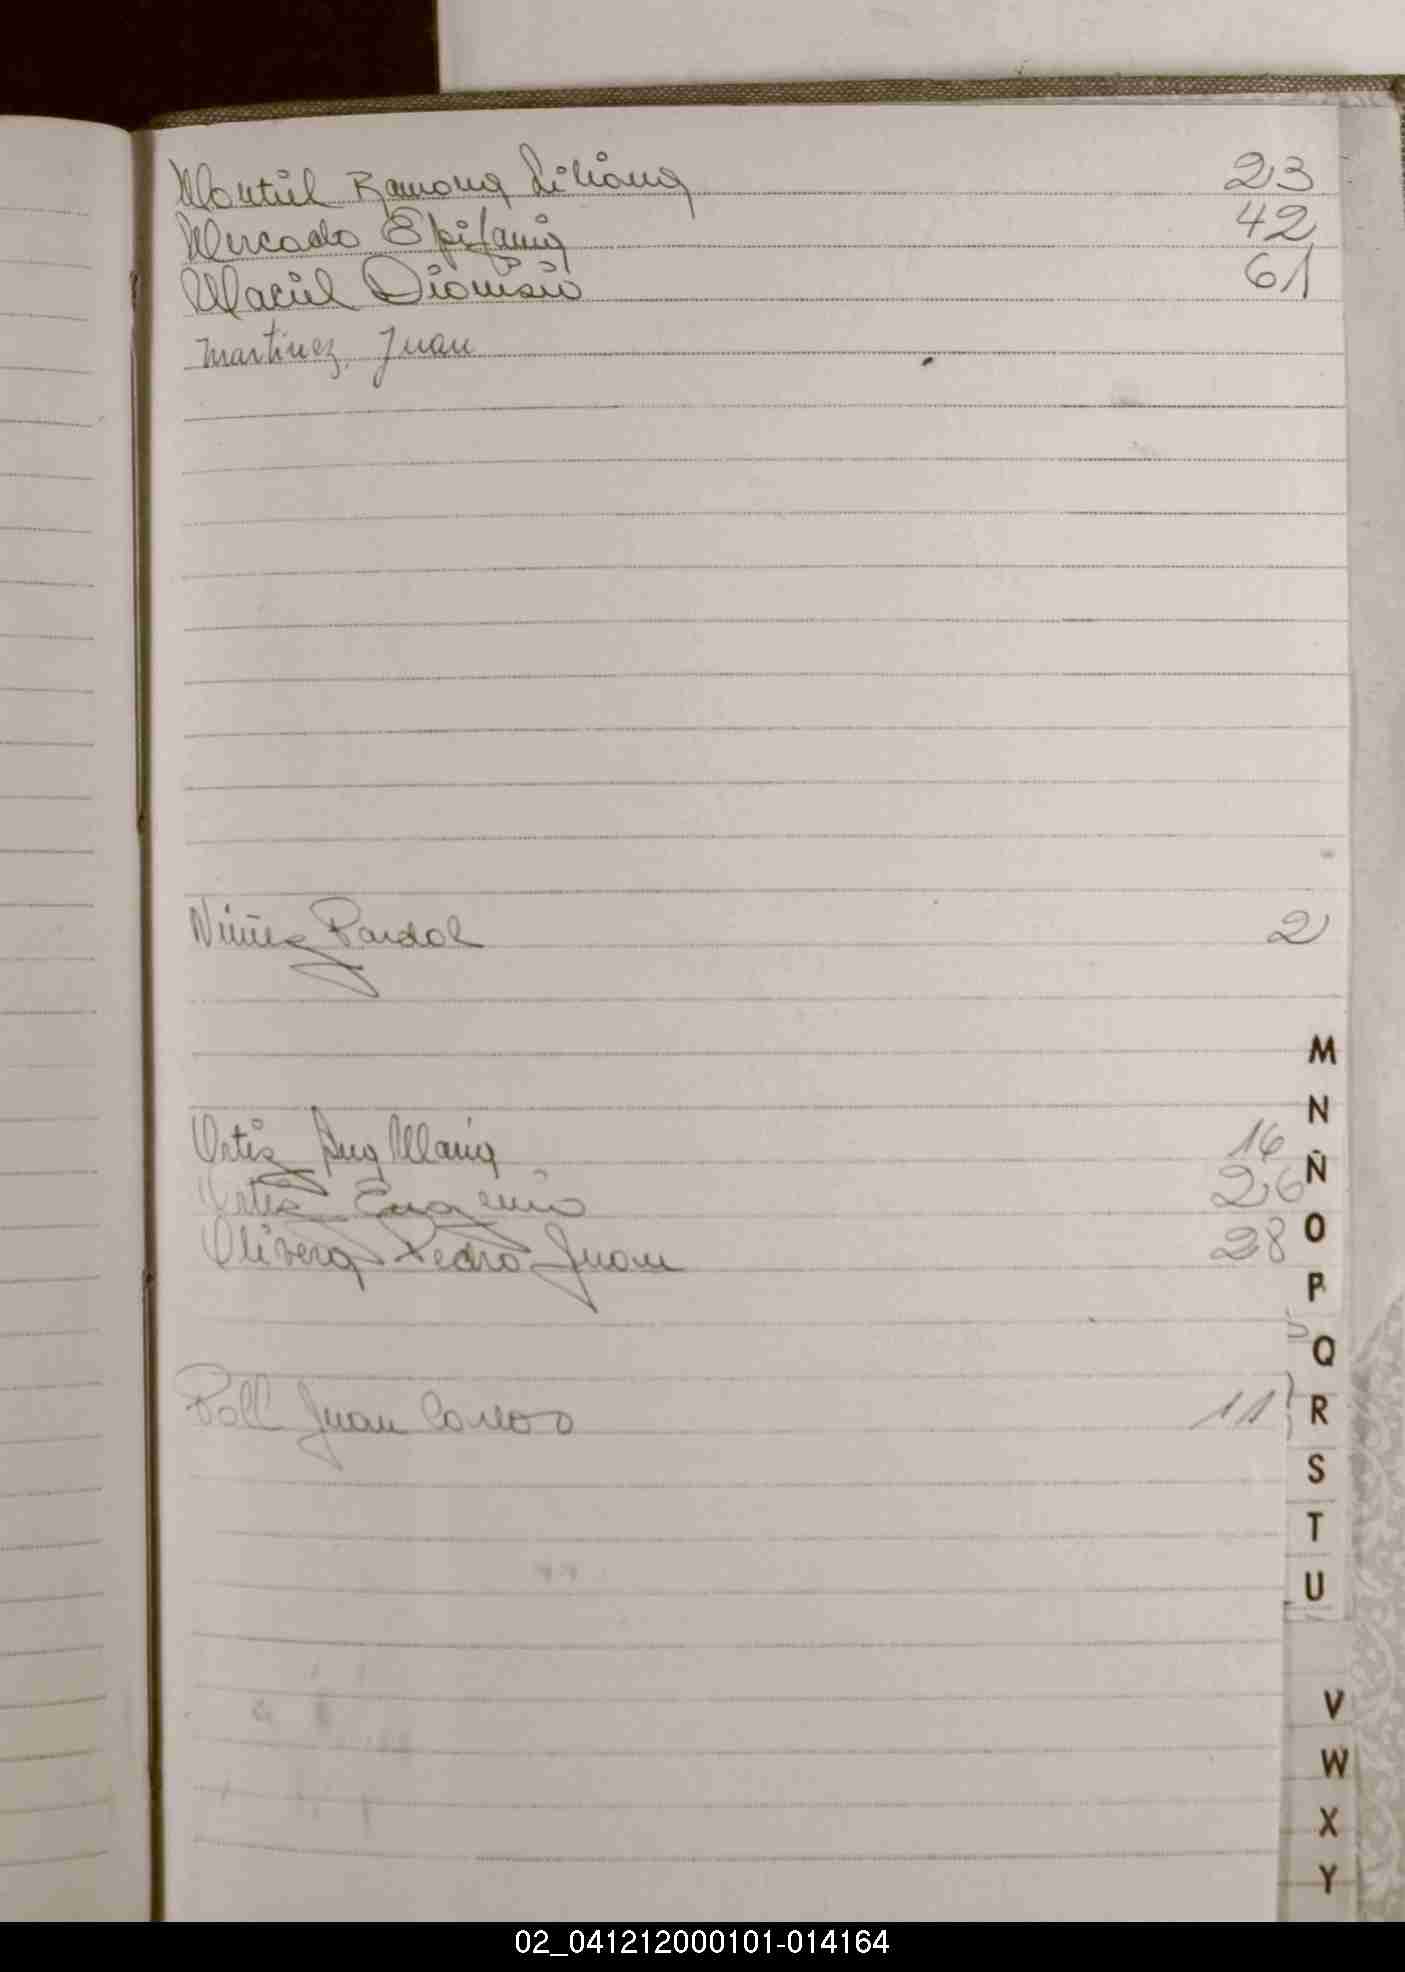 Montiel Ramona Liliana 23
Mercado Epifania 42
Maciel Dionisio 61
Martinez, Juan
Nuñez Pardol 2
Ortiz Ana Maria 16
Ortiz Eugenio 26
Olivera Pedro Juan 28
Poll Juan Carlos 11
M
N
Ñ
O
P
Q
R
S
T
U
V
W
X
Y
02_041212000101-014164